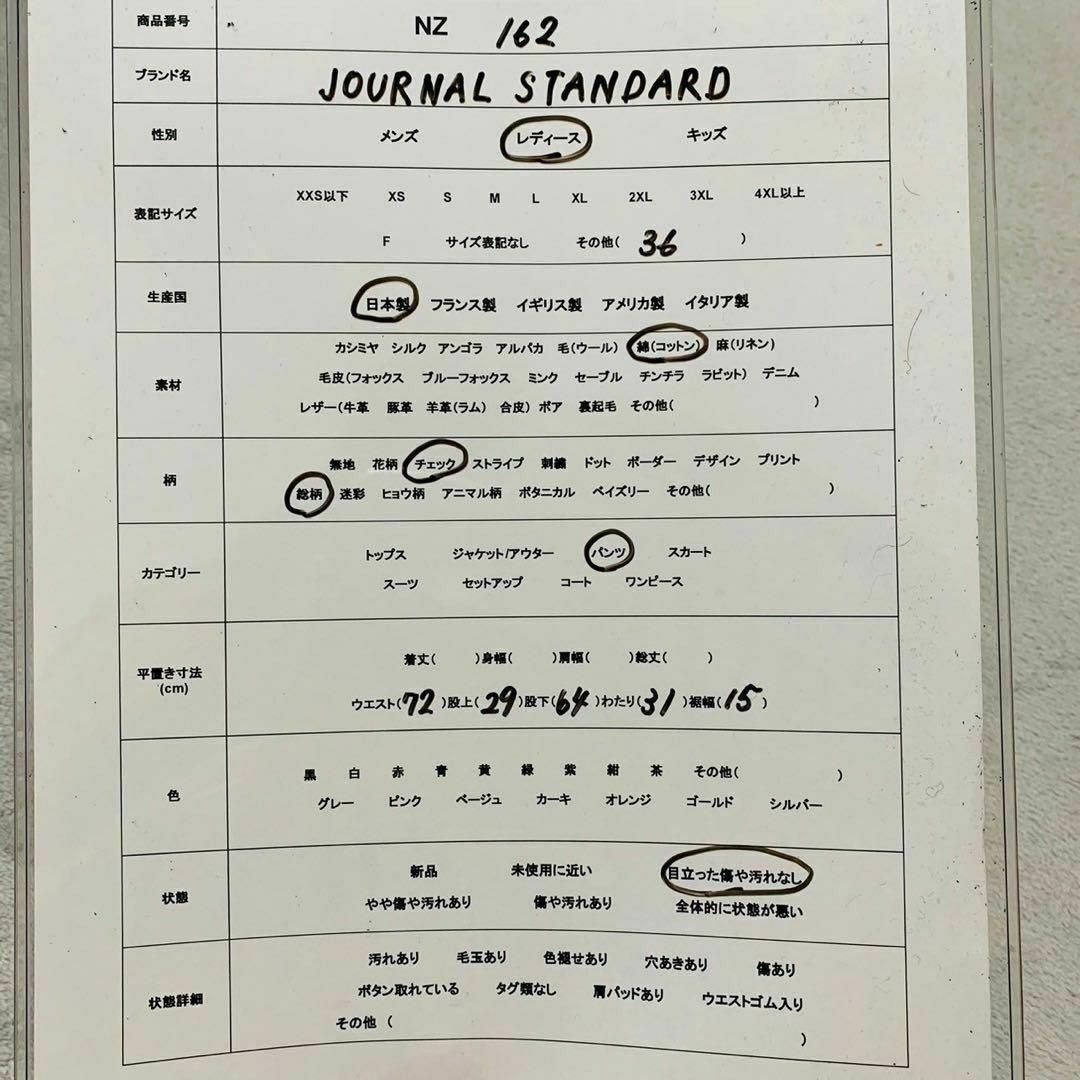 商品番号 NZ 162
ブランド名 JOURNAL STANDARD
性別 メンズ レディース キッズ
XXS以下 XS S M L XL 2XL 3XL 4XL以上
表記サイズ
F サイズ表記なし その他( 36 )
生産国 日本製 フランス製 イギリス製 アメリカ製 イタリア製
カシミヤ シルク アンゴラ アルパカ 毛(ウール) 綿(コットン) 麻(リネン)
素材 毛皮(フォックス ブルーフォックス ミンク セーブル チンチラ ラビット) デニム
レザー(牛革 豚革 羊革(ラム) 合皮) ボア 裏起毛 その他( )
無地 花柄 チェック ストライプ 刺繍 ドット ボーダー デザイン プリント
柄
総柄 迷彩 ヒョウ柄 アニマル柄 ボタニカル ペイズリー その他( )
トップス ジャケット/アウター パンツ スカート
カテゴリー
スーツ セットアップ コート ワンピース
着丈( )身幅( )肩幅( )総丈( )
平置き寸法
(cm)
ウエスト(72)股上(29)股下(64)わたり(31)裾幅(15)
黒 白 赤 青 黄 緑 紫 紺 茶 その他( )
色
グレー ピンク ベージュ カーキ オレンジ ゴールド シルバー
新品 未使用に近い 目立った傷や汚れなし
状態
やや傷や汚れあり 傷や汚れあり 全体的に状態が悪い
汚れあり 毛玉あり 色褪せあり 穴あきあり 傷あり
状態詳細 ボタン取れている タグ類なし 肩パッドあり ウエストゴム入り
その他 ( )